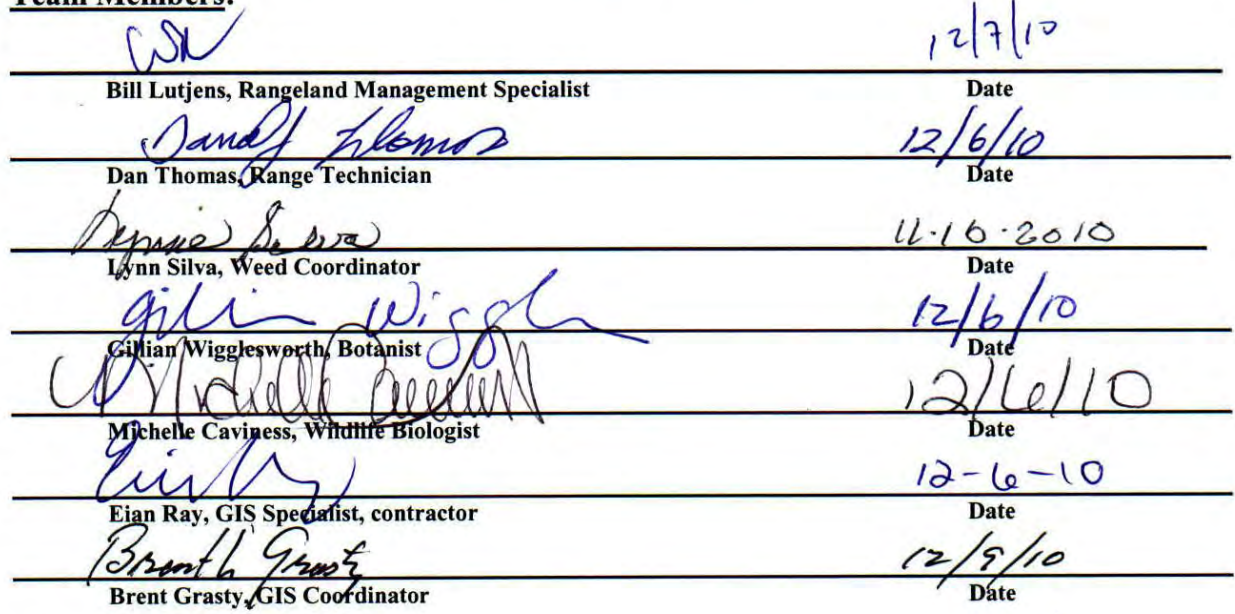 Team Members:
12/7/10
Bill Lutjens, Rangeland Management Specialist Date
12/6/10
Dan Thomas, Range Technician Date
Silva 11-16-2010
Lynn Silva, Weed Coordinator Date
Gillian Wiggl 12/6/10
Gillian Wigglesworth, Botanist Date
Michelle 12/6/10
Michelle Caviness, Wildlife Biologist Date
12-6-10
Eian Ray, GIS Specialist, contractor Date
Brent Grasty 12/9/10
Brent Grasty, GIS Coordinator Date